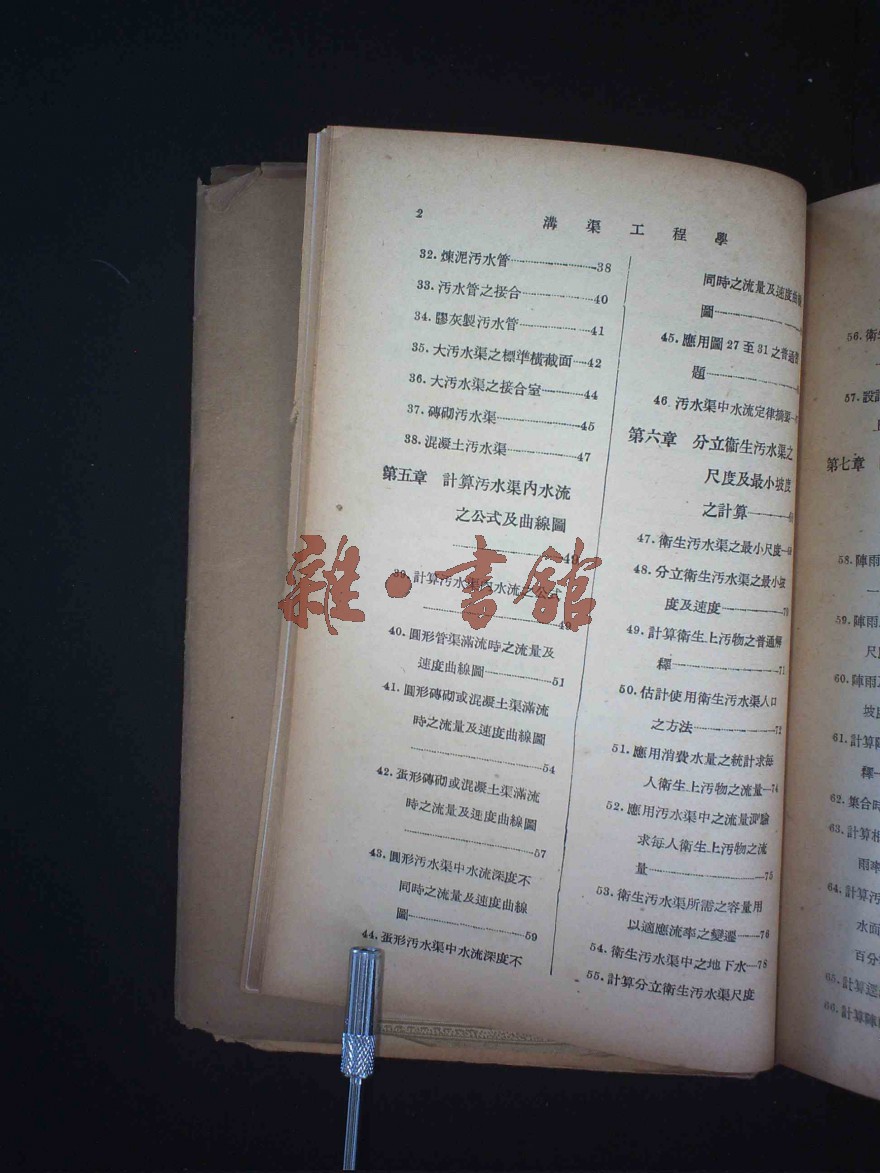 2
溝渠工程學
32.煉泥汚水管38
33.汚水管之接合40
34.膠灰製汚水管41
35.大汚水渠之標準橫截面42
36.大汚水渠之接合室44
37.磚砌汚水渠45
38.混凝土汚水渠47
第五章 計算汚水渠內水流
之公式及曲線圖
49
39.計算汚水渠內水流之公式
49
40.圓形管渠滿流時之流量及
速度曲線圖51
41.圓形磚砌或混凝土渠滿流
時之流量及速度曲線圖
54
42.蛋形磚砌或混凝土渠滿流
時之流量及速度曲線圖
57
43.圓形汚水渠中水流深度不
同時之流量及速度曲線
圖59
44.蛋形汚水渠中水流深度不
同時之流量及速度曲線
圖
45.應用圖27至31之普通習
題
46.汚水渠中水流定律摘要
第六章 分立衞生汚水渠之
尺度及最小坡度
之計算
47.衞生汚水渠之最小尺度
48.分立衞生汚水渠之最小坡
度及速度70
49.計算衞生上汚物之普通解
釋71
50.估計使用衞生汚水渠人口
之方法72
51.應用消費水量之統計求每
人衞生上汚物之流量74
52.應用汚水渠中之流量測驗
求每人衞生上汚物之流
量75
53.衞生汚水渠所需之容量用
以適應流率之變遷76
54.衞生汚水渠中之地下水78
55.計算分立衞生汚水渠尺度
56.衞
57.設
第七章
58.陣雨
59.陣雨
尺
60.陣雨
坡
61.計算
釋
62.集合時
63.計算相
雨率
64.計算汚
水面
百分
65.計算
66.計算陣
雜·書館